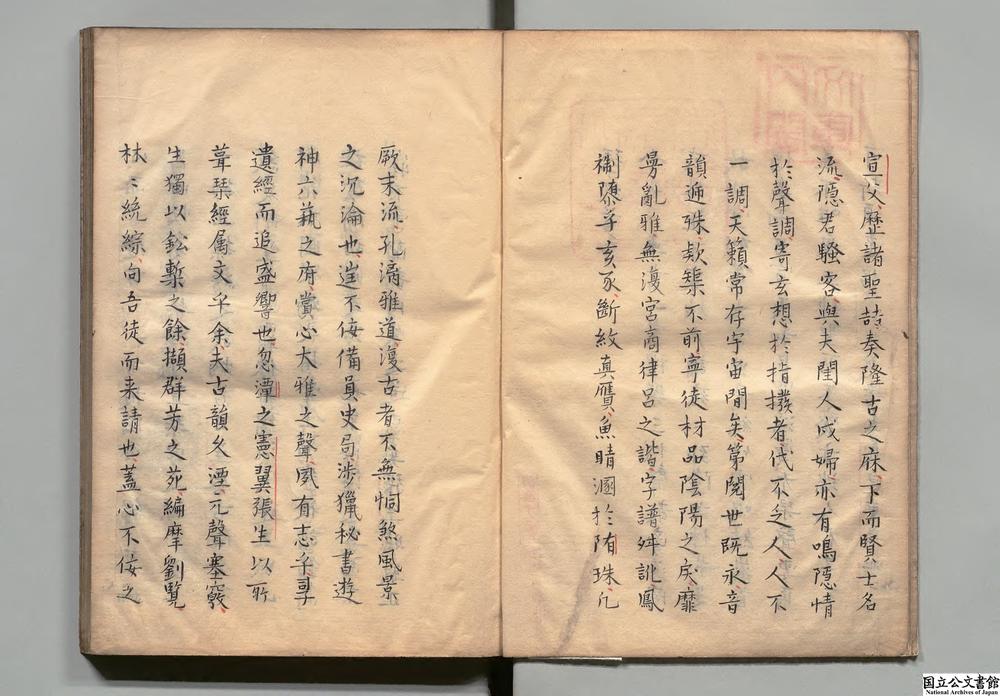 宣父歴諸聖喆奏隆古之庥下而賢士名
流隱君騷客與夫閨人戍婦亦有鳴隱情
於聲調寄玄想於指撥者代不乏人人不
一調天籟常存宇宙間矣第閱世既永音
韻遞殊欵槩不前寧徒材品陰陽之戾靡
曼亂雅無復宮商律呂之諧字譜舛訛鳳
褵豕乎亥豕斷紋真贋魚睛溷於隋珠凡
厥末流孔滴雅道復古者不無恫煞風景
之沉淪也遑不佞備員史局涉獵秘書遊
神六蓺之府賞心大雅之聲夙有志乎尋
遺經而追盛響也忽潭之憲翼張生以所
葺琹經属文乎余夫古韻久湮元聲塞竅
生獨以鈆槧之餘擷群芳之苑編摩劉覽
林〻統綜向吾徒而来請也蓋心不佞之
国立公文書館
National Archives of Japan